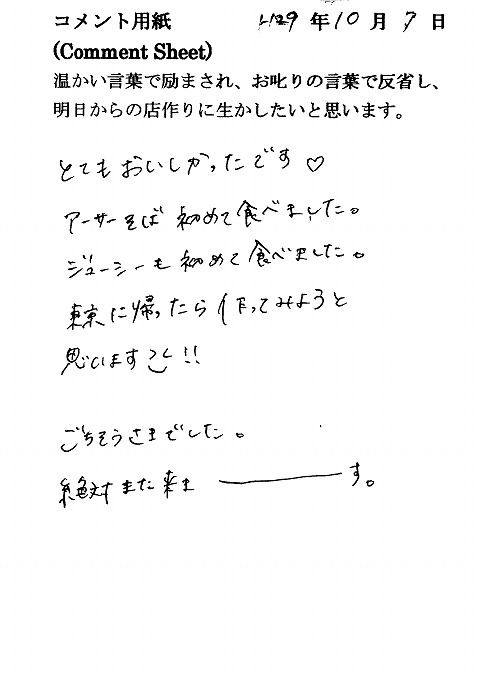 コメント用紙 H29年10月7日
(Comment Sheet)
温かい言葉で励まされ、お叱りの言葉で反省し、
明日からの店作りに生かしたいと思います。
とてもおいしかったです♡
アーサーそば 初めて食べました。
ジューシーも初めて食べました。
東京に帰ったら作ってみようと
思います!!
ごちそうさまでした。
絶対また来ま―――す。